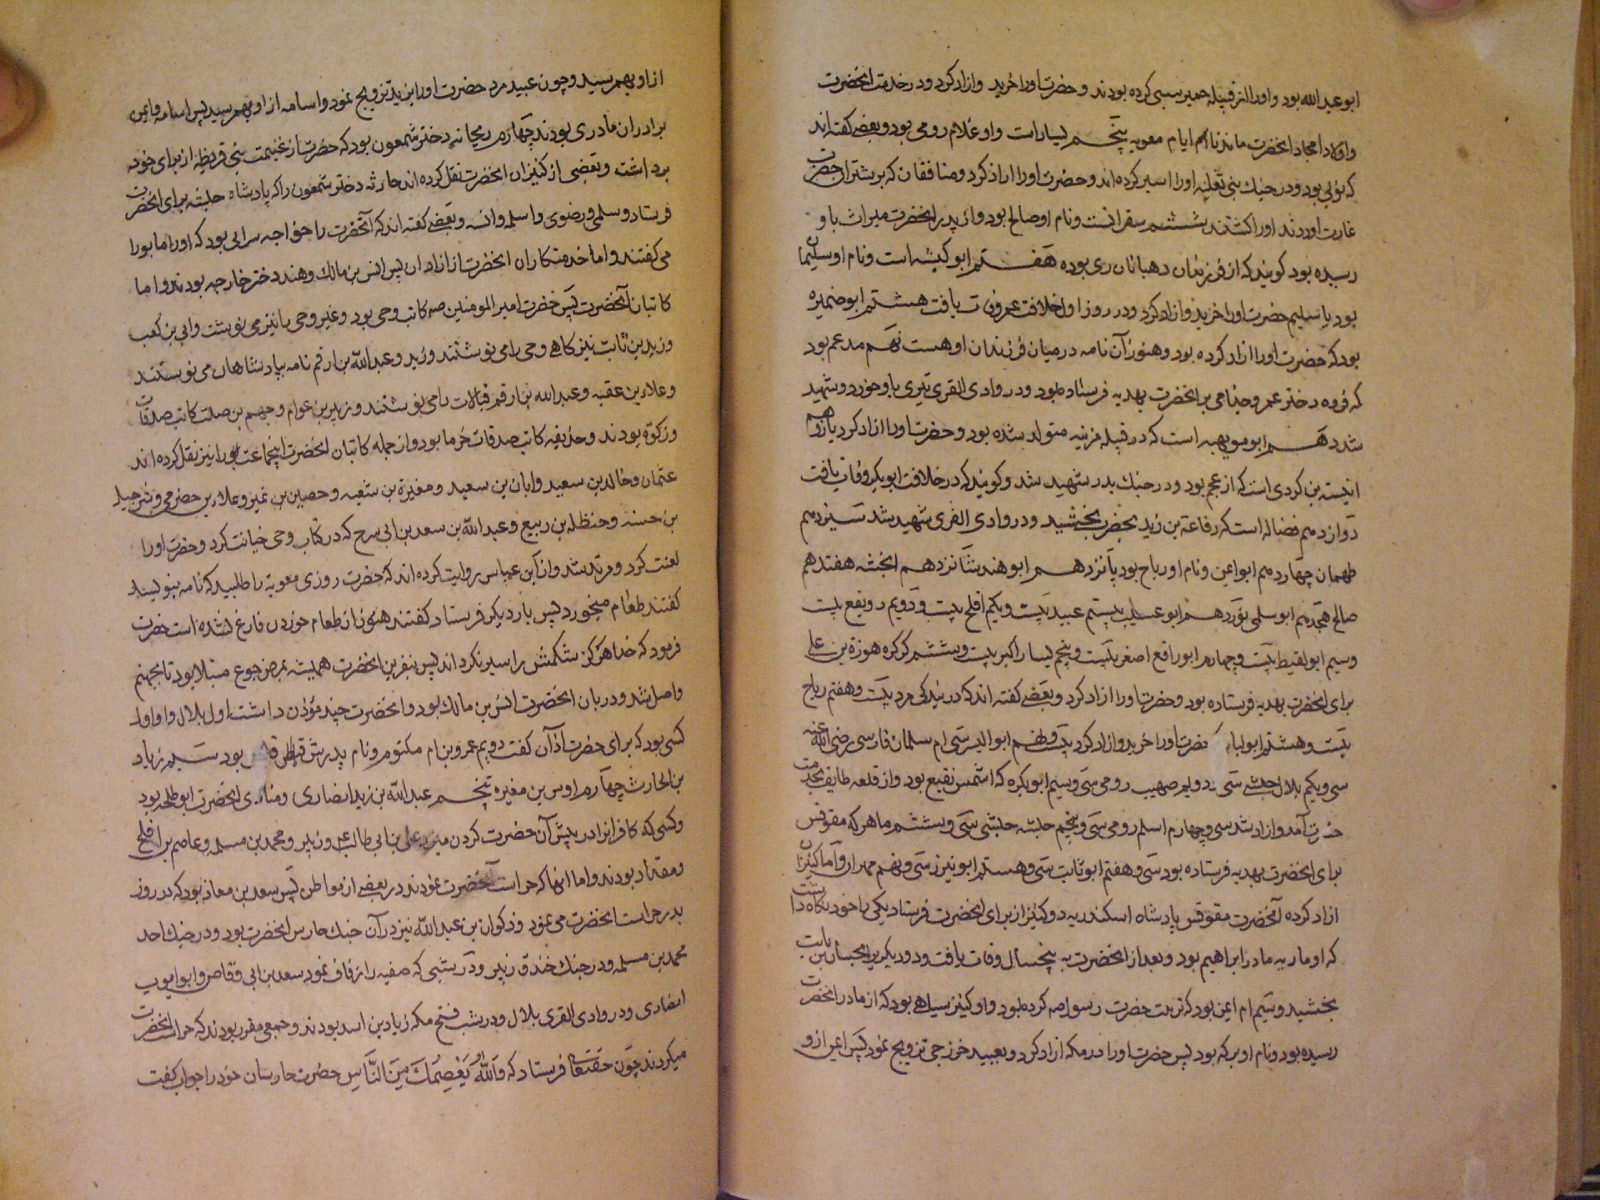 ابوعبدالله بود و اورا از قبیله حمیر سبی کرده بودند و حضرت اورا خرید و ازاد کرد و در خدمت انحضرت
و اولاد امجاد انحضرت ماند تا ایام معویه پنجم یسار است و او غلام رومی بود و بعضی کفته اند
که نوبی بود و در جنك بنی ثعلبه اورا اسیر کرده اند و حضرت اورا ازاد کرد و منافقان که بر شتران حضرت
غارت اوردند اورا کشتند ششم سقرانست و نام او صالح بود و از پدر انحضرت میراث باو
رسیده بود کویند که از فرزندان دهبانان ری بوده هفتم ابو کبشه است و نام او سلیمان
بود یا سلیم حضرت اورا خرید و ازاد کرد و در روز اول خلافت عمر فوت یافت هشتم ابو ضمیره
بود که حضرت اورا ازاد کرده بود و هنوز آن نامه در میان فرزندان او هست نهم مدعم بود
که فروه دختر عمر و جذامی بر انحضرت بهدیه فرستاده بود و در وادی القری تیری باو خورد و شهید
شد دهم ابو مویهبه است که در قبیله مزینه متولد شده بود و حضرت اورا ازاد کرد یازدهم
انیسه بن کردی است که از عجم بود و در جنك بدر شهید شد و کویند که در خلافت ابوبکر وفات یافت
دوازدهم فضاله است که رفاعة بن زید بحضرت بخشید و در وادی القری شهید شد سیزدهم
طهمان چهاردهم ابو ایمن و نام او رباح بود پانزدهم ابو هند شانزدهم انجشه هفتدهم
صالح هجدهم ابو سلمی نوزدهم ابو عسیب بیستم عبید بیست و یکم افلح بیست و دویم رویفع بیست
وسیم ابو لقیط بیست و چهارم ابو رافع اصغر بیست و پنجم یسار اکبر بیست و ششم کرکره هوزة بن علی
برای انحضرت بهدیه فرستاده بود و حضرت اورا ازاد کرد و بعضی کفته اند که در بندکی مرد بیست و هفتم رباح
بیست و هشتم ابو لبابه حضرت اورا خرید و ازاد کرد بیست و نهم ابو الیسر سی ام سلمان فارسی رضی الله عنه
سی و یکم بلال حبشی سی و دویم صهیب رومی سی و سیم ابو بکره که اسمش نفیع بود و از قلعه طایف بخدمت
حضرت آمد و ازاد شد سی و چهارم اسلم رومی سی و پنجم حبشه حبشی سی و ششم ماهر که مقوقس
برای انحضرت بهدیه فرستاده بود سی و هفتم ابو ثابت سی و هشتم ابو نیزر سی و نهم مهران و اما کنیزان
ازاد کرده آنحضرت مقوقس پادشاه اسکندریه دو کنیز از برای انحضرت فرستاد یکی را خود نکاه داشت
که او ماریه مادر ابراهیم بود و بعد از انحضرت به پنجسال وفات یافت و دیکری را بحسان بن ثابت
بخشید و سیم ام ایمن بود که تربیت حضرت رسول صه کرده بود و او کنیز سیاهی بود که از مادر انحضرت
رسیده بود و نام او برکه بود پس حضرت اورا در مکه ازاد کرد و بعبید خزرجی تزویج نمود پس ایمن ازو
از او بهم رسید و چون عبید مرد حضرت اورا بزید تزویج نمود و اسامه از او بهم رسید پس اسامه و ایمن
برادران مادری بودند چهارم ریحانه دختر شمعون بود که حضرت از غنیمت بنی قریظه از برای خود
برداشت و بعضی از کنیزان انحضرت نقل کرده اند حارثه دختر شمعون را که پادشاه حبشه برای انحضرت
فرستاد و سلمی و رضوی و اسلمه و انسه و بعضی کفته اند که آنحضرت را خواجه سرائی بود که اورا مابورا
می کفتند و اما خدمتکاران انحضرت از ازادان پس انس بن مالك و هند دختر خارجه بودند و اما
کاتبان آنحضرت پس حضرت امیر المومنین صه کاتب وحی بود و غیر وحی را نیز می نوشت و ابی بن کعب
و زید بن ثابت نیز کاهی وحی را می نوشتند و زید و عبدالله بن ارقم نامه بپادشاهان می نوشتند
و علاء بن عقبه و عبدالله بن ارقم قبالات را می نوشتند و زبیر بن عوام و جهیم بن صلت کاتب صدقات
و زکوة بودند و حذیفه کاتب صدقات خرما بود و از جمله کاتبان انحضرت اینجماعت را نیز نقل کرده اند
عثمان و خالد بن سعید و ابان بن سعید و مغیرة بن شعبه و حصین بن نمیر و علاء بن حضرمی و شرحبیل
بن حسنه و حنظله بن ربیع و عبدالله بن سعد بن ابی سرح که در کتاب وحی خیانت کرد و حضرت اورا
لعنت کرد و مرتد شد و از ابن عباس روایت کرده اند که حضرت روزی معویه را طلبید که نامه بنویسد
کفتند طعام میخورد پس بار دیکر فرستاد کفتند هنوز از طعام خوردن فارغ نشده است حضرت
فرمود که خدا هرکز شکمش را سیر نکرداند پس بنفرین انحضرت همیشه بمرض جوع مبتلا بود تا بجهنم
واصل شد و دربان انحضرت انس بن مالك بود و انحضرت چند مؤذن داشت اول بلال و او اول
کسی بود که برای حضرت اذان کفت دویم عمرو بن ام مکتوم و نام پدرش بود سیم زیاد
بن الحارث چهارم اوس بن مغیره پنجم عبدالله بن زید انصاری و منادی انحضرت ابو طلحه بود
و کسی که کافرانرا در پیش آن حضرت کردن میزد علی بن ابی طالب ع و زبیر و محمد بن مسلمه و عاصم بن افلح
و مقداد بودند و اما انها که حراست آنحضرت نمودند در بعضی از مواطن پس سعد بن معاذ بود که در روز
بدر حراست انحضرت می نمود و ذکوان بن عبدالله نیز در آن جنك حارس انحضرت بود و در جنك احد
محمد بن مسلمه و در جنك خندق زبیر و در شبی که صفیه را زفاف نمود سعد بن ابی وقاص و ابو ایوب
انصاری و در وادی القری بلال و در شب فتح مکه زیاد بن اسد بودند و جمعی مقرر بودند که حراست انحضرت
میکردند چون حقتعالی فرستاد که وَاللهُ یَعْصِمُكَ مِنَ النَّاسِ حضرت حارسان خود را جواب کفت